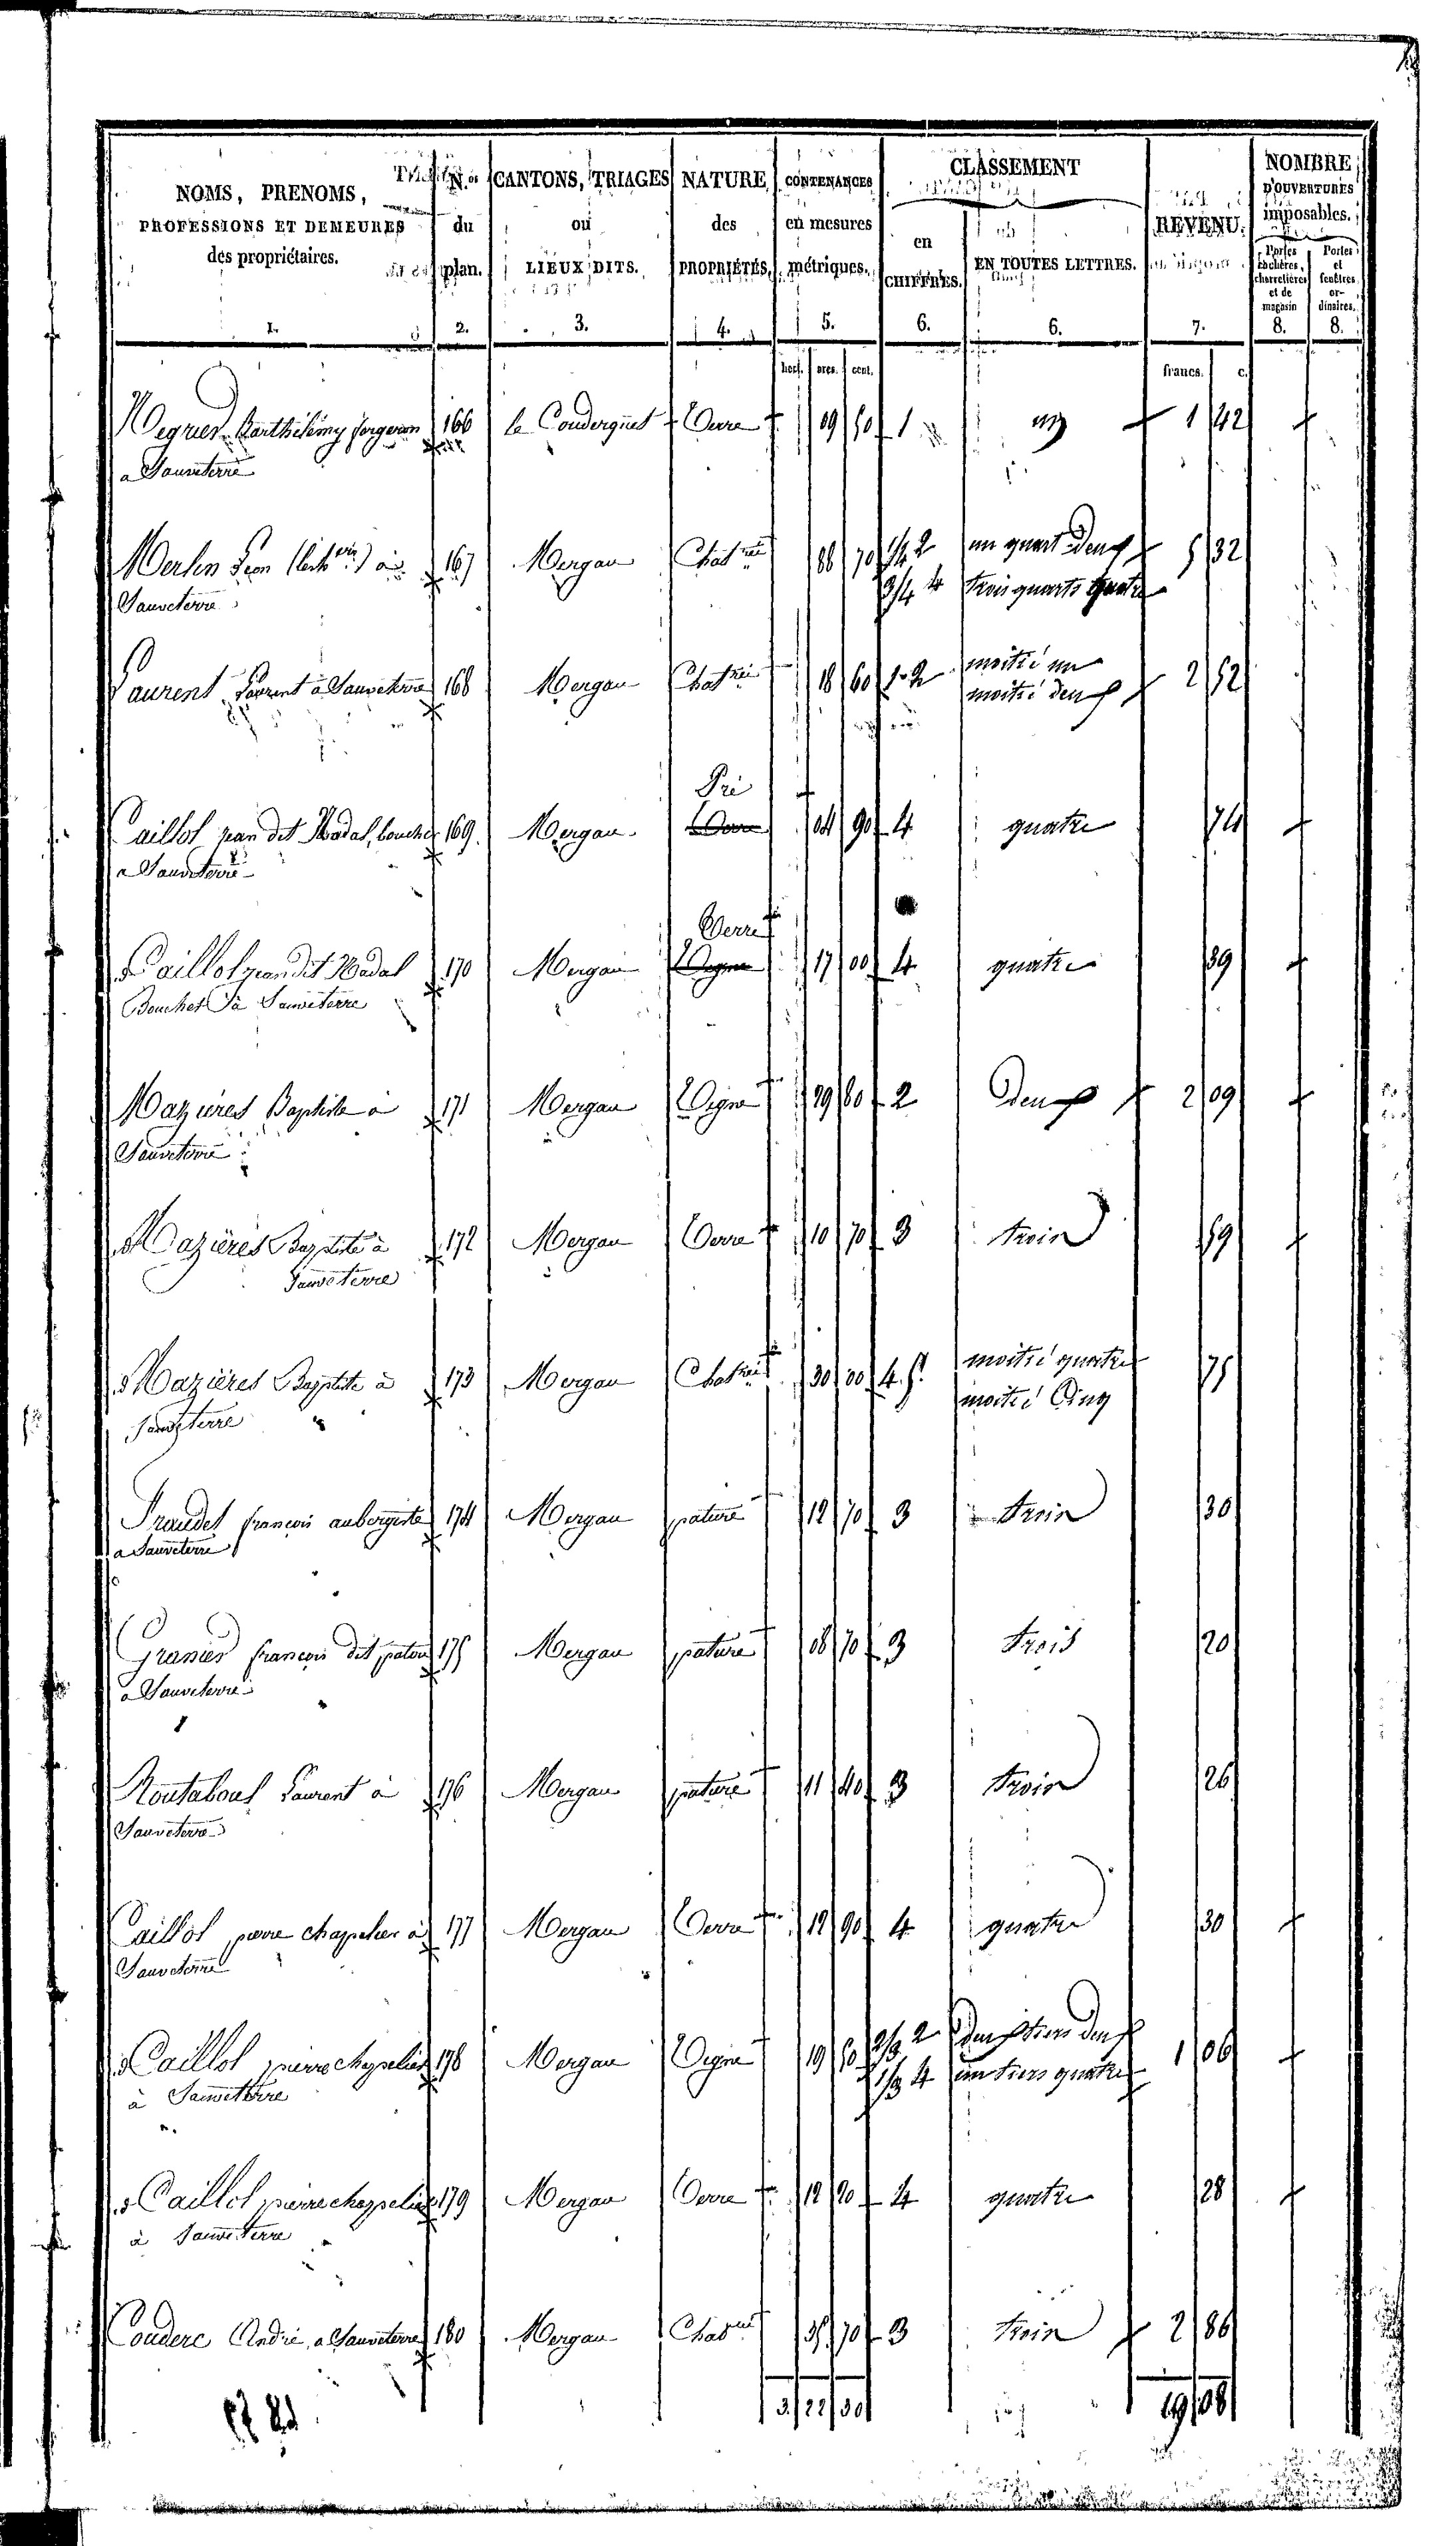 NOMS, PRENOMS, PROFESSIONS ET DEMEURES des propriétaires. 1.
N.os du plan. 2.
CANTONS, TRIAGES ou LIEUX DITS. 3.
NATURE des PROPRIÉTÉS. 4.
CONTENANCES en mesures métriques. 5.
CLASSEMENT
en CHIFFRES. 6.
EN TOUTES LETTRES. 6.
REVENU. 7.
NOMBRE D'OUVERTURES imposables.
Portes cochères, charretières et de magasin 8.
Portes et fenêtres ordinaires. 8.
hect. ares. cent. francs. c.
Barthélémy forgeron 166 le Couderguet Terre 09 50 1 un 1 42
a Sauveterre
Merlin 167 Mergau Chatrée 88 70 1/4 2 un quart Deux 5 32
Sauveterre 3/4 4 trois quarts quatre
Laurent Laurent à Sauveterre 168 Mergau Chatrée 18 60 1-2 moitié un 2 52
moitié deux
Pré
Caillol jean dit Nadal, boucher 169 Mergau Terre 04 90 4 quatre 74
a Sauveterre
Terre
Caillol jean dit Nadal 170 Mergau Vigne 17 00 4 quatre 39
Boucher à Sauveterre
Mazières Baptiste à 171 Mergau Vigne 29 80 2 Deux 2 09
Sauveterre
Mazières Baptiste à 172 Mergau Terre 10 70 3 trois 59
Sauveterre
Mazières Baptiste à 173 Mergau Chatrée 30 00 4.5 moitié quatre 75
Sauveterre moitié Cinq
françois aubergiste 174 Mergau pature 12 70 3 trois 30
a Sauveterre
Granier françois dit 175 Mergau pature 08 70 3 trois 20
a Sauveterre
Routaboul Laurent à 176 Mergau pature 11 40 3 trois 26
Sauveterre
Caillol pierre chapelier à 177 Mergau Terre 12 90 4 quatre 30
Sauveterre
Caillol pierre chapelier 178 Mergau Vigne 19 50 2/3 2 Deux tiers deux 1 06
à Sauveterre 1/3 4 un tiers quatre
Caillol pierre chapelier 179 Mergau Terre 12 20 4 quatre 28
à Sauveterre
Couderc André a Sauveterre 180 Mergau Chatrée 35 70 3 trois 2 86
3 22 30 19 08